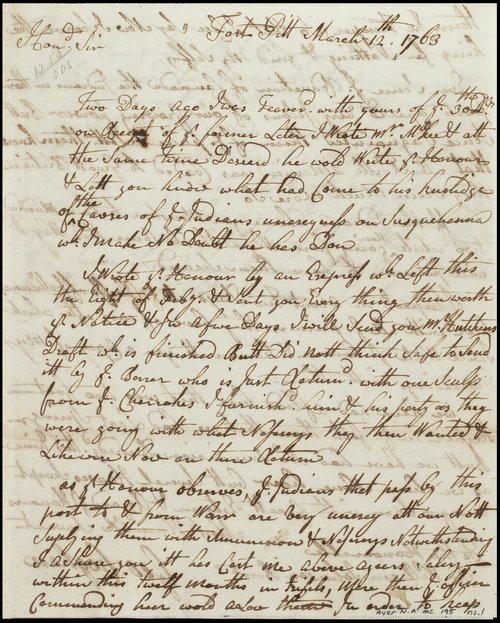 Fort Pitt March 12.th 1763
Hon.d Sir
Two Days ago I was Feavor.d with yours of y.e 30th
on Recept of y.e former Leter, I Wrote Mr. McKee & att
the Same time Desierd he wold Write y.r Honour
& Lett you know what had Come to his knolidge
of the Causes of y.e Indians uneseyness on Susquehanna
wh. I make No Doubt he has Don
I Wrote y.r Honour by an Express wh. Left this
the Eight of Feb.y & Sent you Every thing then worth
y.r Notice & In a few Days I will Send you Mr. Hutchins
Draft wh. is finished Butt Did Nott think Safe to Send
itt by y.e Barer who is Just Returnd. with one Sculp
from y.e Cherokes I furnishd. him & his party as they
were going with what Nesesereys they then Wanted &
Likewise Now on there Return
as y.r Honour observes, y.e Indians that pass by this
post to & from Warr are very unesey att our Nott
Suplying them with Amunision & Nesesereys Notwithstanding
I aShure you itt has Cost me above a years Salery
within this twelf months in trifels, Were then y.e officer
Commanding heer wold alow them In order to keep
Ayer N.A. MS. 195 no. 1